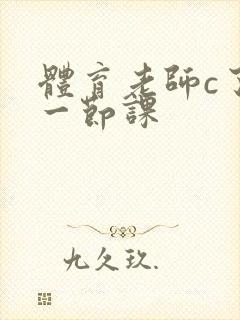 體育老師c了
一節課
九久玖.